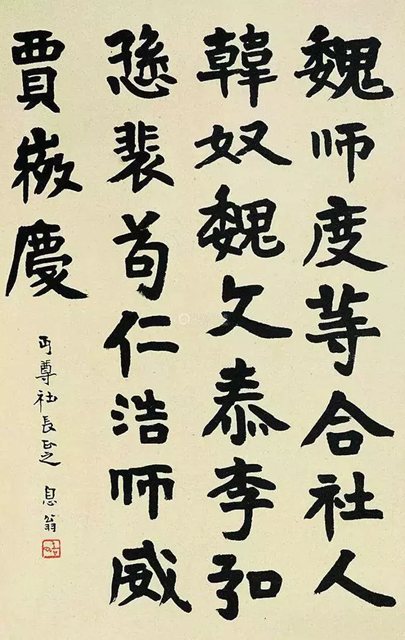 魏师度等合社人
韓奴魏文泰李弘
愻裴苟仁浩师威
賈㣲慶
丏尊社長正之 息翁